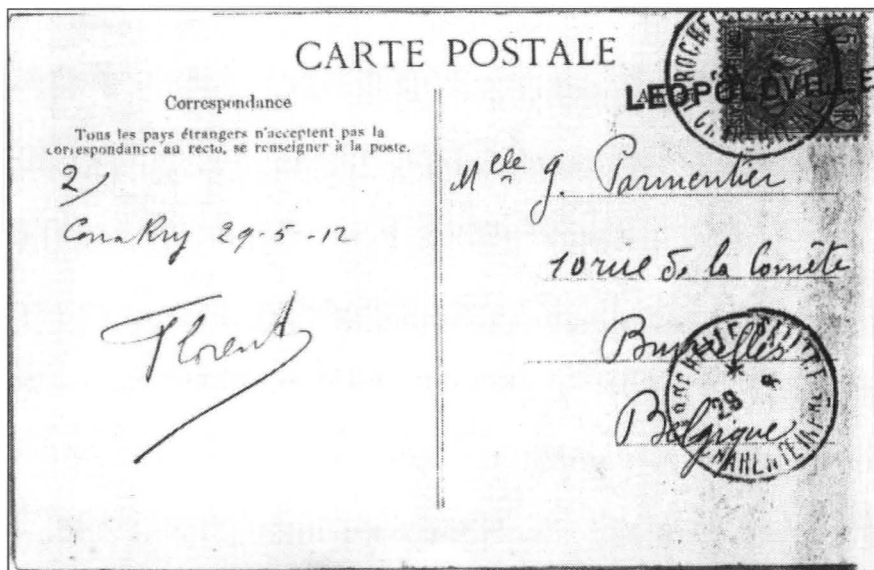 CARTE POSTALE
Correspondance
Tous les pays étrangers n'acceptent pas la
correspondance au recto, se renseigner à la poste.
2)
Conakry 29-5-12
Florent
LEOPOLDVILLE
Mlle g. Parmentier
10 rue de la Comète
Bruxelles
Belgique
28